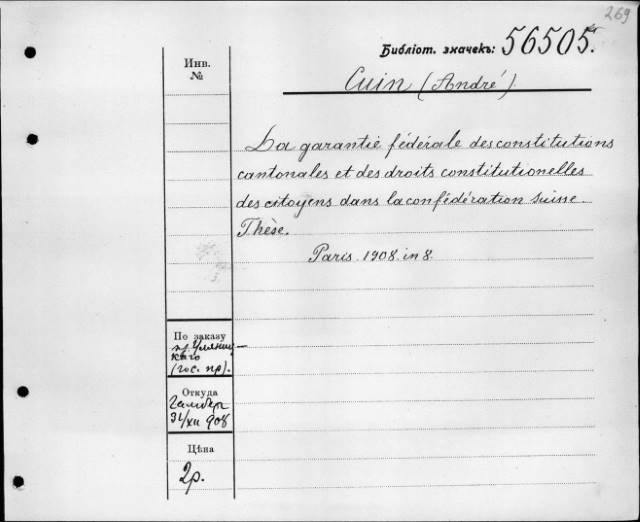 269
Библіот. значекъ: 56505.
Cuin (André)
Инв.
№
La garantie fédérale des constitutions
cantonales et des droits constitutionelles
des citoyens dans la confédération suisse.
Thèse.
Paris. 1908. in 8.
По заказу
пр. Уляниц-
каго
(гос. пр).
Откуда
31/XII 908
Цѣна
2р.